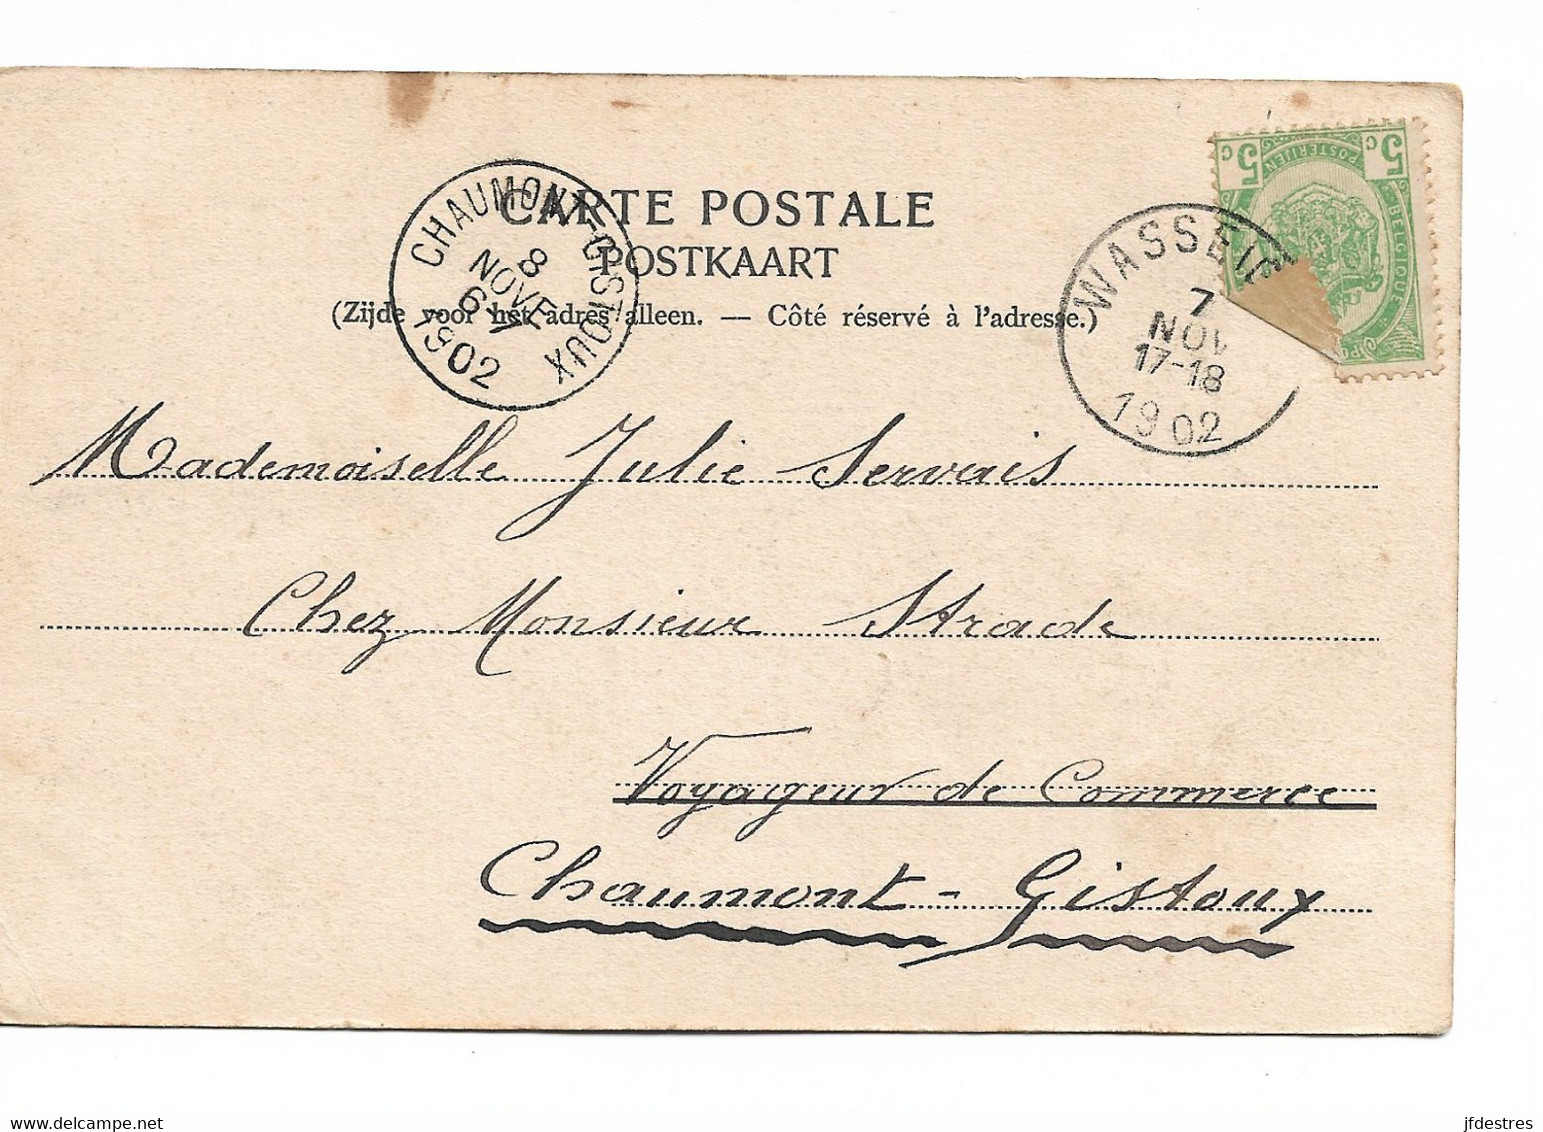 CARTE POSTALE
POSTKAART
(Zijde voor het adres alleen. — Côté réservé à l'adresse.)
CHAUMONT-GISTOUX
8
NOVE
6-M
1902
WASSEIG
7
NOV
17-18
1902
5 c POSTERIJEN 5 c
BELGIQUE
Mademoiselle Julie Servais
Chez Monsieur Strade
Voyageur de Commerce
Chaumont-Gistoux
www.delcampe.net
jfdestres